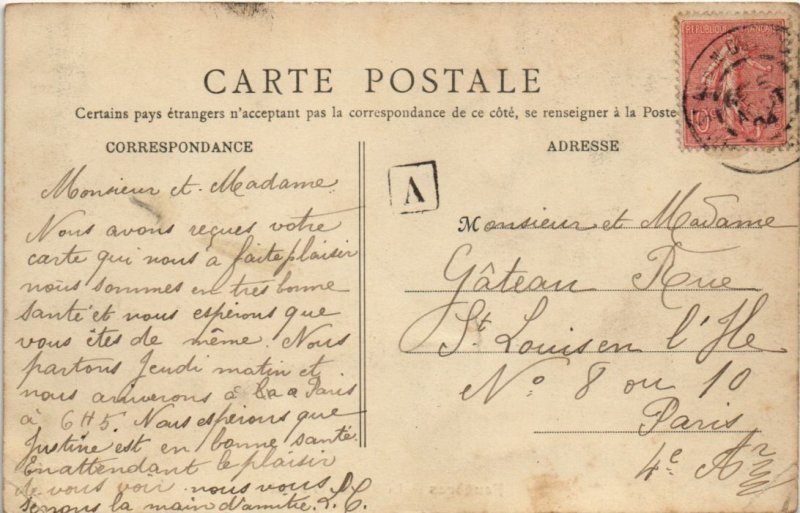 CARTE POSTALE
Certains pays étrangers n'acceptant pas la correspondance de ce côté, se renseigner à la Poste
CORRESPONDANCE
Monsieur et Madame
Nous avons reçues votre
carte qui nous a faite plaisir
nous sommes en tres bonne
santé et nous espérons que
vous êtes de même. Nous
partons Jeudi matin et
nous ariverons à Paris
à 6H5. Nous espérons que
Justine est en bonne santé.
En attendant le plaisir
de vous voir nous vous
serrons la main d'amitié. L. C.
A
REPUBLIQUE FRANCAISE
ADRESSE
Monsieur et Madame
Gâteau Rue
St Louis en l'Ile
No 8 ou 10
Paris
4e Ar